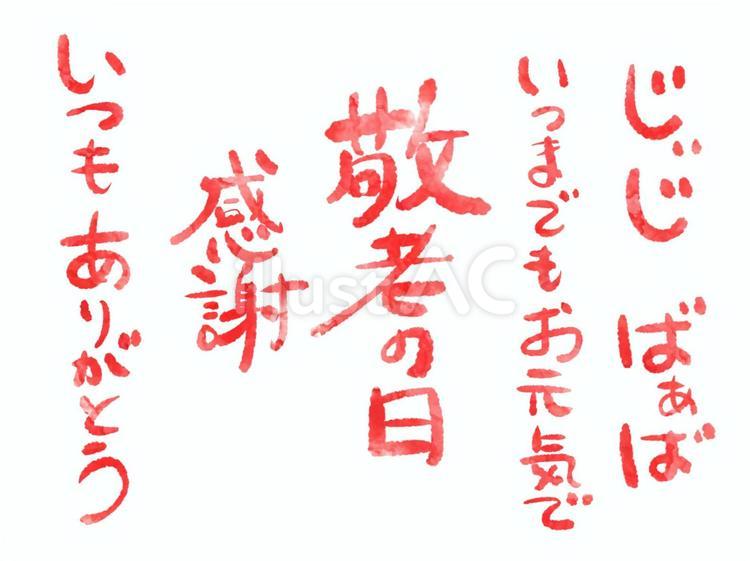 じじ ばぁば
いつまでもお元気で
敬老の日
感謝
いつもありがとう
illustAC